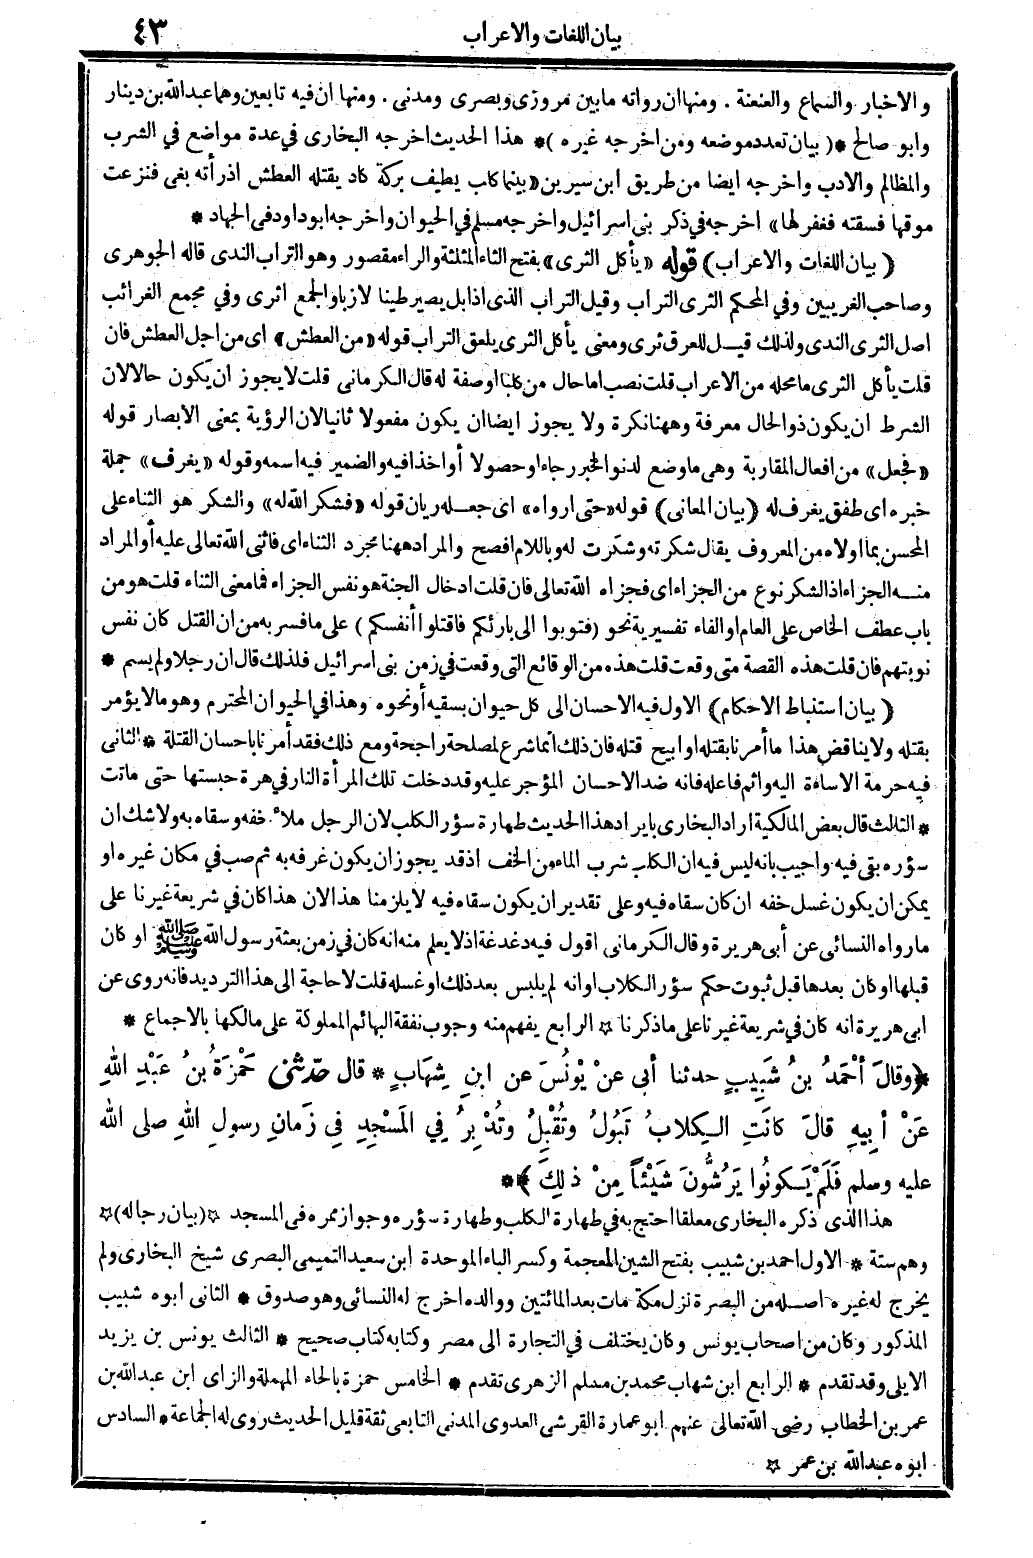 بيان اللغات والاعراب ٤٣
والاخبار والسماع والعنعنة . ومنها ان رواته ما بين مروزى وبصرى ومدنى . ومنها ان فيه تابعين وهما عبدالله بن دينار
وابو صالح * ( بيان تعدد موضعه ومن اخرجه غيره ) * هذا الحديث اخرجه البخارى في عدة مواضع في الشرب
والمظالم والادب واخرجه ايضا من طريق ابن سيرين «بينما كلب يطيف بركة كاد يقتله العطش اذ رأته بغى فنزعت
موقها فسقته فغفر لها» اخرجه في ذكر بنى اسرائيل واخرجه مسلم في الحيوان واخرجه ابو داود فى الجهاد *
( بيان اللغات والاعراب ) قوله «يأكل الثرى» بفتح الثاء المثلثة والراء مقصور وهو التراب الندى قاله الجوهرى
وصاحب الغريبين وفي المحكم الثرى التراب وقيل التراب الذى اذا بل يصير طينا لازبا والجمع اثرى وفي مجمع الغرائب
اصل الثرى الندى ولذلك قيل للعرق ثرى ومعنى يأكل الثرى يلعق التراب قوله «من العطش» اى من اجل العطش فان
قلت يأكل الثرى ما محله من الاعراب قلت نصب اما حال من كلبا او صفة له قال الكرمانى قلت لا يجوز ان يكون حالا لان
الشرط ان يكون ذو الحال معرفة وههنا نكرة ولا يجوز ايضا ان يكون مفعولا ثانيا لان الرؤية بمعنى الابصار قوله
«فجعل» من افعال المقاربة وهى ما وضع لدنو الخبر رجاء او حصولا أو اخذا فيه والضمير فيه اسمه وقوله «يغرف» جملة
خبره اى طفق يغرف له ( بيان المعانى ) قوله «حتى ارواه» اى جعله ريان قوله «فشكر الله له» والشكر هو الثناء على
المحسن بما اولاه من المعروف يقال شكرته وشكرت له وباللام افصح والمراد ههنا مجرد الثناء اى فاثنى الله تعالى عليه أو المراد
منه الجزاء اذ الشكر نوع من الجزاء اى فجزاه الله تعالى فان قلت ادخال الجنة هو نفس الجزاء فما معنى الثناء قلت هو من
باب عطف الخاص على العام او الفاء تفسيرية نحو ( فتوبوا الى بارئكم فاقتلوا أنفسكم ) على ما فسر به من ان القتل كان نفس
نوبتهم فان قلت هذه القصة متى وقعت قلت هذه من الوقائع التى وقعت في زمن بنى اسرائيل فلذلك قال ان رجلا ولم يسم *
( بيان استنباط الاحكام ) الاول فيه الاحسان الى كل حيوان بسقيه أو نحوه وهذا في الحيوان المحترم وهو ما لا يؤمر
بقتله ولا يناقض هذا ما أمرنا بقتله او ابيح قتله فان ذلك انما شرع لمصلحة راجحة ومع ذلك فقد أمرنا باحسان القتلة * الثانى
فيه حرمة الاساءة اليه واثم فاعله فانه ضد الاحسان المؤجر عليه وقد دخلت تلك المرأة النار في هرة حبستها حتى ماتت
* الثالث قال بعض المالكية اراد البخارى بايراد هذا الحديث طهارة سؤر الكلب لان الرجل ملأ خفه وسقاه به ولا شك ان
سؤره بقى فيه واجيب بانه ليس فيه ان الكلب شرب الماء من الخف اذ قد يجوز ان يكون غرفه به ثم صب في مكان غيره او
يمكن ان يكون غسل خفه ان كان سقاه فيه وعلى تقدير ان يكون سقاه فيه لا يلزمنا هذا لان هذا كان في شريعة غيرنا على
ما رواه النسائى عن أبى هريرة وقال الكرمانى اقول فيه دغدغة اذ لا يعلم منه انه كان في زمن بعثة رسول الله ﷺ او كان
قبلها او كان بعدها قبل ثبوت حكم سؤر الكلاب او انه لم يلبس بعد ذلك او غسله قلت لا حاجة الى هذا الترديد فانه روى عن
ابى هريرة انه كان في شريعة غيرنا على ما ذكرنا ☆ الرابع يفهم منه وجوب نفقة البهائم المملوكة على مالكها بالاجماع *
* ( وقالَ أحْمَدُ بنُ شَبِيبٍ حدثنا أبى عنْ يُونُسَ عن ابنِ شِهَابٍ * قال حدّثنى حَمْزَةُ بنُ عَبْدِ اللهِ
عَنْ أبِيهِ قالَ كانَتِ الكِلابُ تَبُولُ وتُقْبِلُ وتُدْبِرُ فِي المَسْجِدِ فِى زَمانِ رسولِ اللهِ صلى الله
عليه وسلم فَلَمْ يَكونُوا يَرُشُّونَ شَيْئاً مِنْ ذلِكَ ) *
هذا الذى ذكره البخارى معلقا احتج به في طهارة الكلب وطهارة سؤره وجواز ممره فى المسجد ☆ ( بيان رجاله ) ☆
وهم ستة * الاول احمد بن شبيب بفتح الشين المعجمة وكسر الباء الموحدة ابن سعيد التميمى البصرى شيخ البخارى ولم
يخرج له غيره اصله من البصرة نزل مكة مات بعد المائتين ووالده اخرج له النسائى وهو صدوق * الثانى ابوه شبيب
المذكور وكان من اصحاب يونس وكان يختلف في التجارة الى مصر وكتابه كتاب صحيح * الثالث يونس بن يزيد
الايلى وقد تقدم * الرابع ابن شهاب محمد بن مسلم الزهرى تقدم * الخامس حمزة بالحاء المهملة والزاى ابن عبدالله بن
عمر بن الخطاب رضى الله تعالى عنهم ابو عمارة القرشى العدوى المدنى التابعى ثقة قليل الحديث روى له الجماعة * السادس
ابوه عبدالله بن عمر ☆